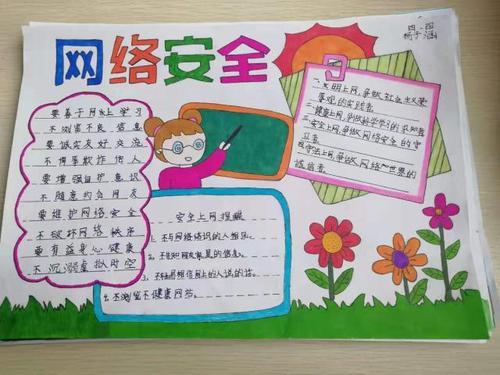 网络安全
四、四
杨子涵
要善于网上学习
不浏览不良信息
要诚实友好交流
不侮辱欺诈他人
要增强自护意识
不随意约会网友
要维护网络安全
不破坏网络秩序
要有益身心健康
不沉溺虚拟时空
一、文明上网，争做社会主义荣
辱观的实践者。
二、健康上网，争做科学学习的求知者
三、安全上网，争做网络安全的守
卫者。
守法上网，争做网络世界的
诚信者。
安全上网提醒
1、不与网络结识的人相见。
2、不
3、不轻易相信网上的人说的话。
4、不浏览不健康网站。